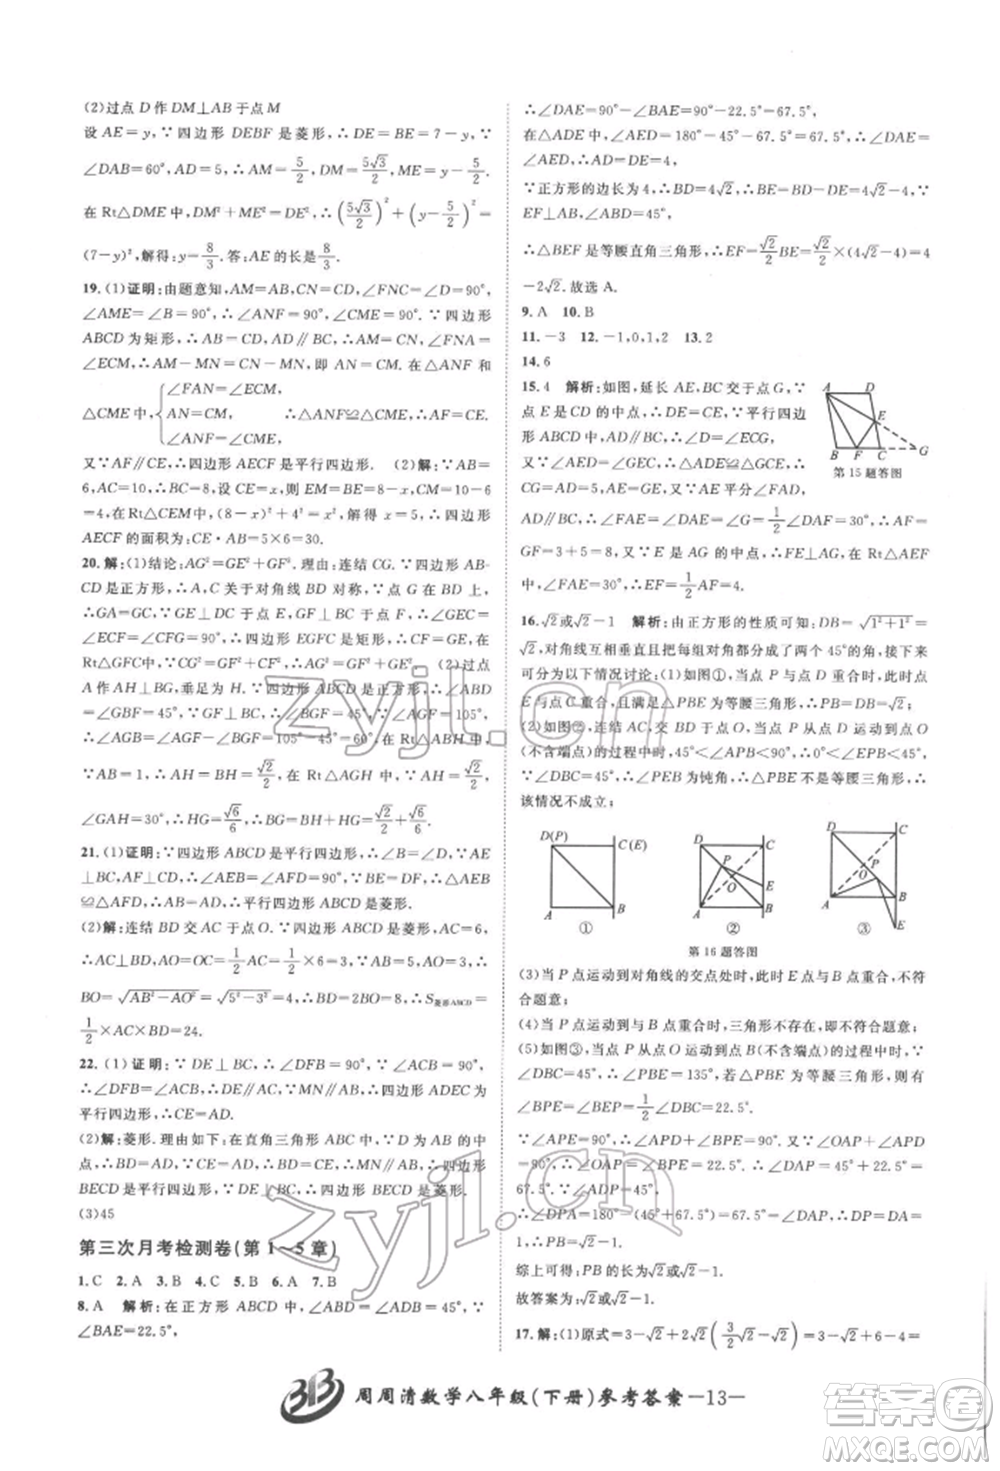 (2)过点 D 作 DM⊥AB 于点 M
设 AE=y,∵四边形 DEBF 是菱形,∴DE=BE=7-y,∵
∠DAB=60°,AD=5,∴AM=5/2,DM=5√3/2,ME=y-5/2,
在 Rt△DME 中,DM²+ME²=DE²,∴(5√3/2)²+(y-5/2)²=
(7-y)²,解得:y=8/3.答:AE 的长是8/3.
19.(1)证明:由题意知,AM=AB,CN=CD,∠FNC=∠D=90°,
∠AME=∠B=90°,∴∠ANF=90°,∠CME=90°,∵四边形
ABCD 为矩形,∴AB=CD,AD∥BC,∴AM=CN,∠FAN=
∠ECM,∴AM-MN=CN-MN,即 AN=CM,在△ANF 和
△CME 中,{∠FAN=∠ECM, AN=CM, ∠ANF=∠CME, ∴△ANF≌△CME(ASA),∴AF=CE.
又∵AF∥CE,∴四边形 AECF 是平行四边形. (2)解:∵AB=
6,AC=10,∴BC=8,设 CE=x,则 EM=8-x,CM=10-6
=4,在 Rt△CEM 中,(8-x)²+4²=x²,解得 x=5,∴四边形
AECF 的面积为:CE·AB=5×6=30.
20.解:(1)结论:AG²=GE²+GF².理由:连结 CG.∵四边形 AB-
CD 是正方形,∴A,C 关于对角线 BD 对称,∵点 G 在 BD 上,
∴GA=GC,∵GE⊥DC 于点 E,GF⊥BC 于点 F,∴∠GEC=
∠ECF=∠CFG=90°,∴四边形 EGFC 是矩形,∴CF=GE,在
Rt△GFC 中,∵CG²=GF²+CF²,∴AG²=GF²+GE². (2)过点
A 作 AH⊥BG,垂足为 H.∵四边形 ABCD 是正方形,∴∠ABD=
∠GBF=45°,∵GF⊥BC,∴∠BGF=45°,∵∠AGF=105°,
∴∠AGB=∠AGF-∠BGF=105°-45°=60°,在 Rt△ABH 中,
∵AB=1,∴AH=BH=√2/2,在 Rt△AGH 中,∵AH=√2/2,
∠GAH=30°,∴HG=√6/6,∴BG=BH+HG=√2/2+√6/6.
21.(1)证明:∵四边形 ABCD 是平行四边形,∴∠B=∠D,∵AE
⊥BC,AF⊥CD,∴∠AEB=∠AFD=90°,∵BE=DF,∴△AEB
≌△AFD,∴AB=AD,∴平行四边形 ABCD 是菱形.
(2)解:连结 BD 交 AC 于点 O.∵四边形 ABCD 是菱形,AC=6,
∴AC⊥BD,AO=OC=1/2AC=1/2×6=3,∵AB=5,AO=3,∴
BO=√AB²-AO²=√5²-3²=4,∴BD=2BO=8,∴S菱形ABCD=
1/2×AC×BD=24.
22.(1)证明:∵DE⊥BC,∴∠DFB=90°,∵∠ACB=90°,∴
∠ACB=∠DFB,∴AC∥DE,∵MN∥AB,∴四边形 ADEC 是
平行四边形,∴CE=AD.
(2)解:菱形.理由如下:在直角三角形 ABC 中,∵点 D 为 AB 的中
点,∴BD=AD,∵CE=AD,∴BD=CE,∵MN∥AB,∴四边形
BECD 是平行四边形,∵DE⊥CB,∴四边形 BECD 是菱形.
(3)45
第三次月考检测卷(第1~5章)
1.C 2.A 3.B 4.C 5.B 6.A 7.B
8.A 解析:在正方形 ABCD 中,∠ABD=∠ADB=45°,∵
∠BAE=22.5°,
∴∠DAE=90°-∠BAE=90°-22.5°=67.5°,
在△ADE 中,∠AED=180°-45°-67.5°=67.5°,∴∠DAE=
∠AED,∴AD=DE=4,
∵正方形的边长为4,∴BD=4√2,∴BE=BD-DE=4√2-4,∵
EF⊥AB,∠ABD=45°,
∴△BEF 是等腰直角三角形,∴EF=√2/2BE=√2/2×(4√2-4)=4
-2√2.故选 A.
9.A 10.B
11.-3 12.-1,0,1,2 13.2
14.6
15.4 解析:如图,延长 AE,BC 交于点 G,∵
点 E 是 CD 的中点,∴DE=CE,∵平行四边
形 ABCD 中,AD∥BC,∴∠D=∠ECG,
又∵∠AED=∠GEC,∴△ADE≌△GCE,∴
CG=AD=5,AE=GE,又∵AE 平分∠FAD,
AD∥BC,∴∠FAE=∠DAE=∠G=1/2∠DAF=30°,∴AF=
GF=3+5=8,又∵E 是 AG 的中点,∴FE⊥AG,在 Rt△AEF
中,∠FAE=30°,∴EF=1/2AF=4.
A D E B F C G
第15题答图
16.√2或√2-1 解析:由正方形的性质可知:DB=√1²+1²=
√2,对角线互相垂直且每组对角都分成了两个45°的角.如下
图可分为以下五种情况讨论:(1)如图①,当点 P 与点 D 重合时,此时点
E 与点 C 重合,且满足△PBE 为等腰三角形,此时 PB=DB=√2.
(2)如图②,连结 AC,交 BD 于点 O,当点 P 从点 D 运动到点 O
(不含端点)的过程中时,45°<∠APB<90°,∴∠EPB<45°,
∵∠DBC=45°,∴∠PEB 为钝角,∴△PBE 不是等腰三角形,∴
该情况不成立;
D(P) C(E) A B ①
D C P O E A B ②
D C O P A B E ③
第16题答图
(3)当 P 点运动到对角线的交点处时,此时 E 点与 B 点重合,不符
合题意;
(4)当 P 点运动与 B 点重合时,三角形不存在,即不符合题意;
(5)如图③,当 P 点从点 O 运动到点 B(不含端点)的过程中时,∵
∠DBC=45°,∴∠PBE=135°,若△PBE 为等腰三角形,则有
∠BPE=∠PEB=1/2∠DBC=22.5°,
∵∠APE=90°,∴∠APB=90°-22.5°=67.5°,∵∠OAP+∠APO
=90°,∠OAP+∠DAP=45°+∠OAP,∴∠DAP=45°+22.5°=
67.5°,∴∠DAP=∠DPA=67.5°,∴DP=DA=1,∴PB=√2
-1.
综上可得:PB 长为√2或√2-1.
故答案为√2或√2-1.
17.解:(1)原式=3-√2+2√2(3/2√2-√2)=3-√2+2√2×√2/2=
周周清数学八年级(下册)参考答案—13—
zyjl.cn
zyjl.cn
答案圈
MXQE.COM